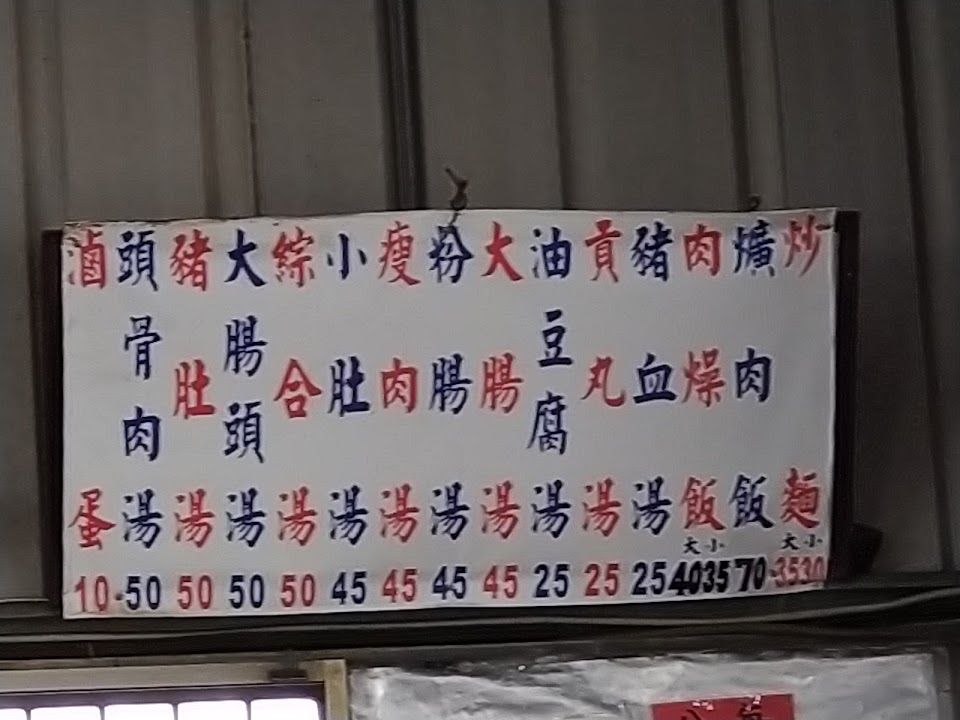 炒麵大35小30
爌肉飯70
肉燥飯大40小35
豬血湯25
貢丸湯25
油豆腐湯25
大腸湯45
粉腸湯45
瘦肉湯45
小肚湯45
綜合湯50
大腸頭湯50
豬肚湯50
頭骨肉湯50
滷蛋10